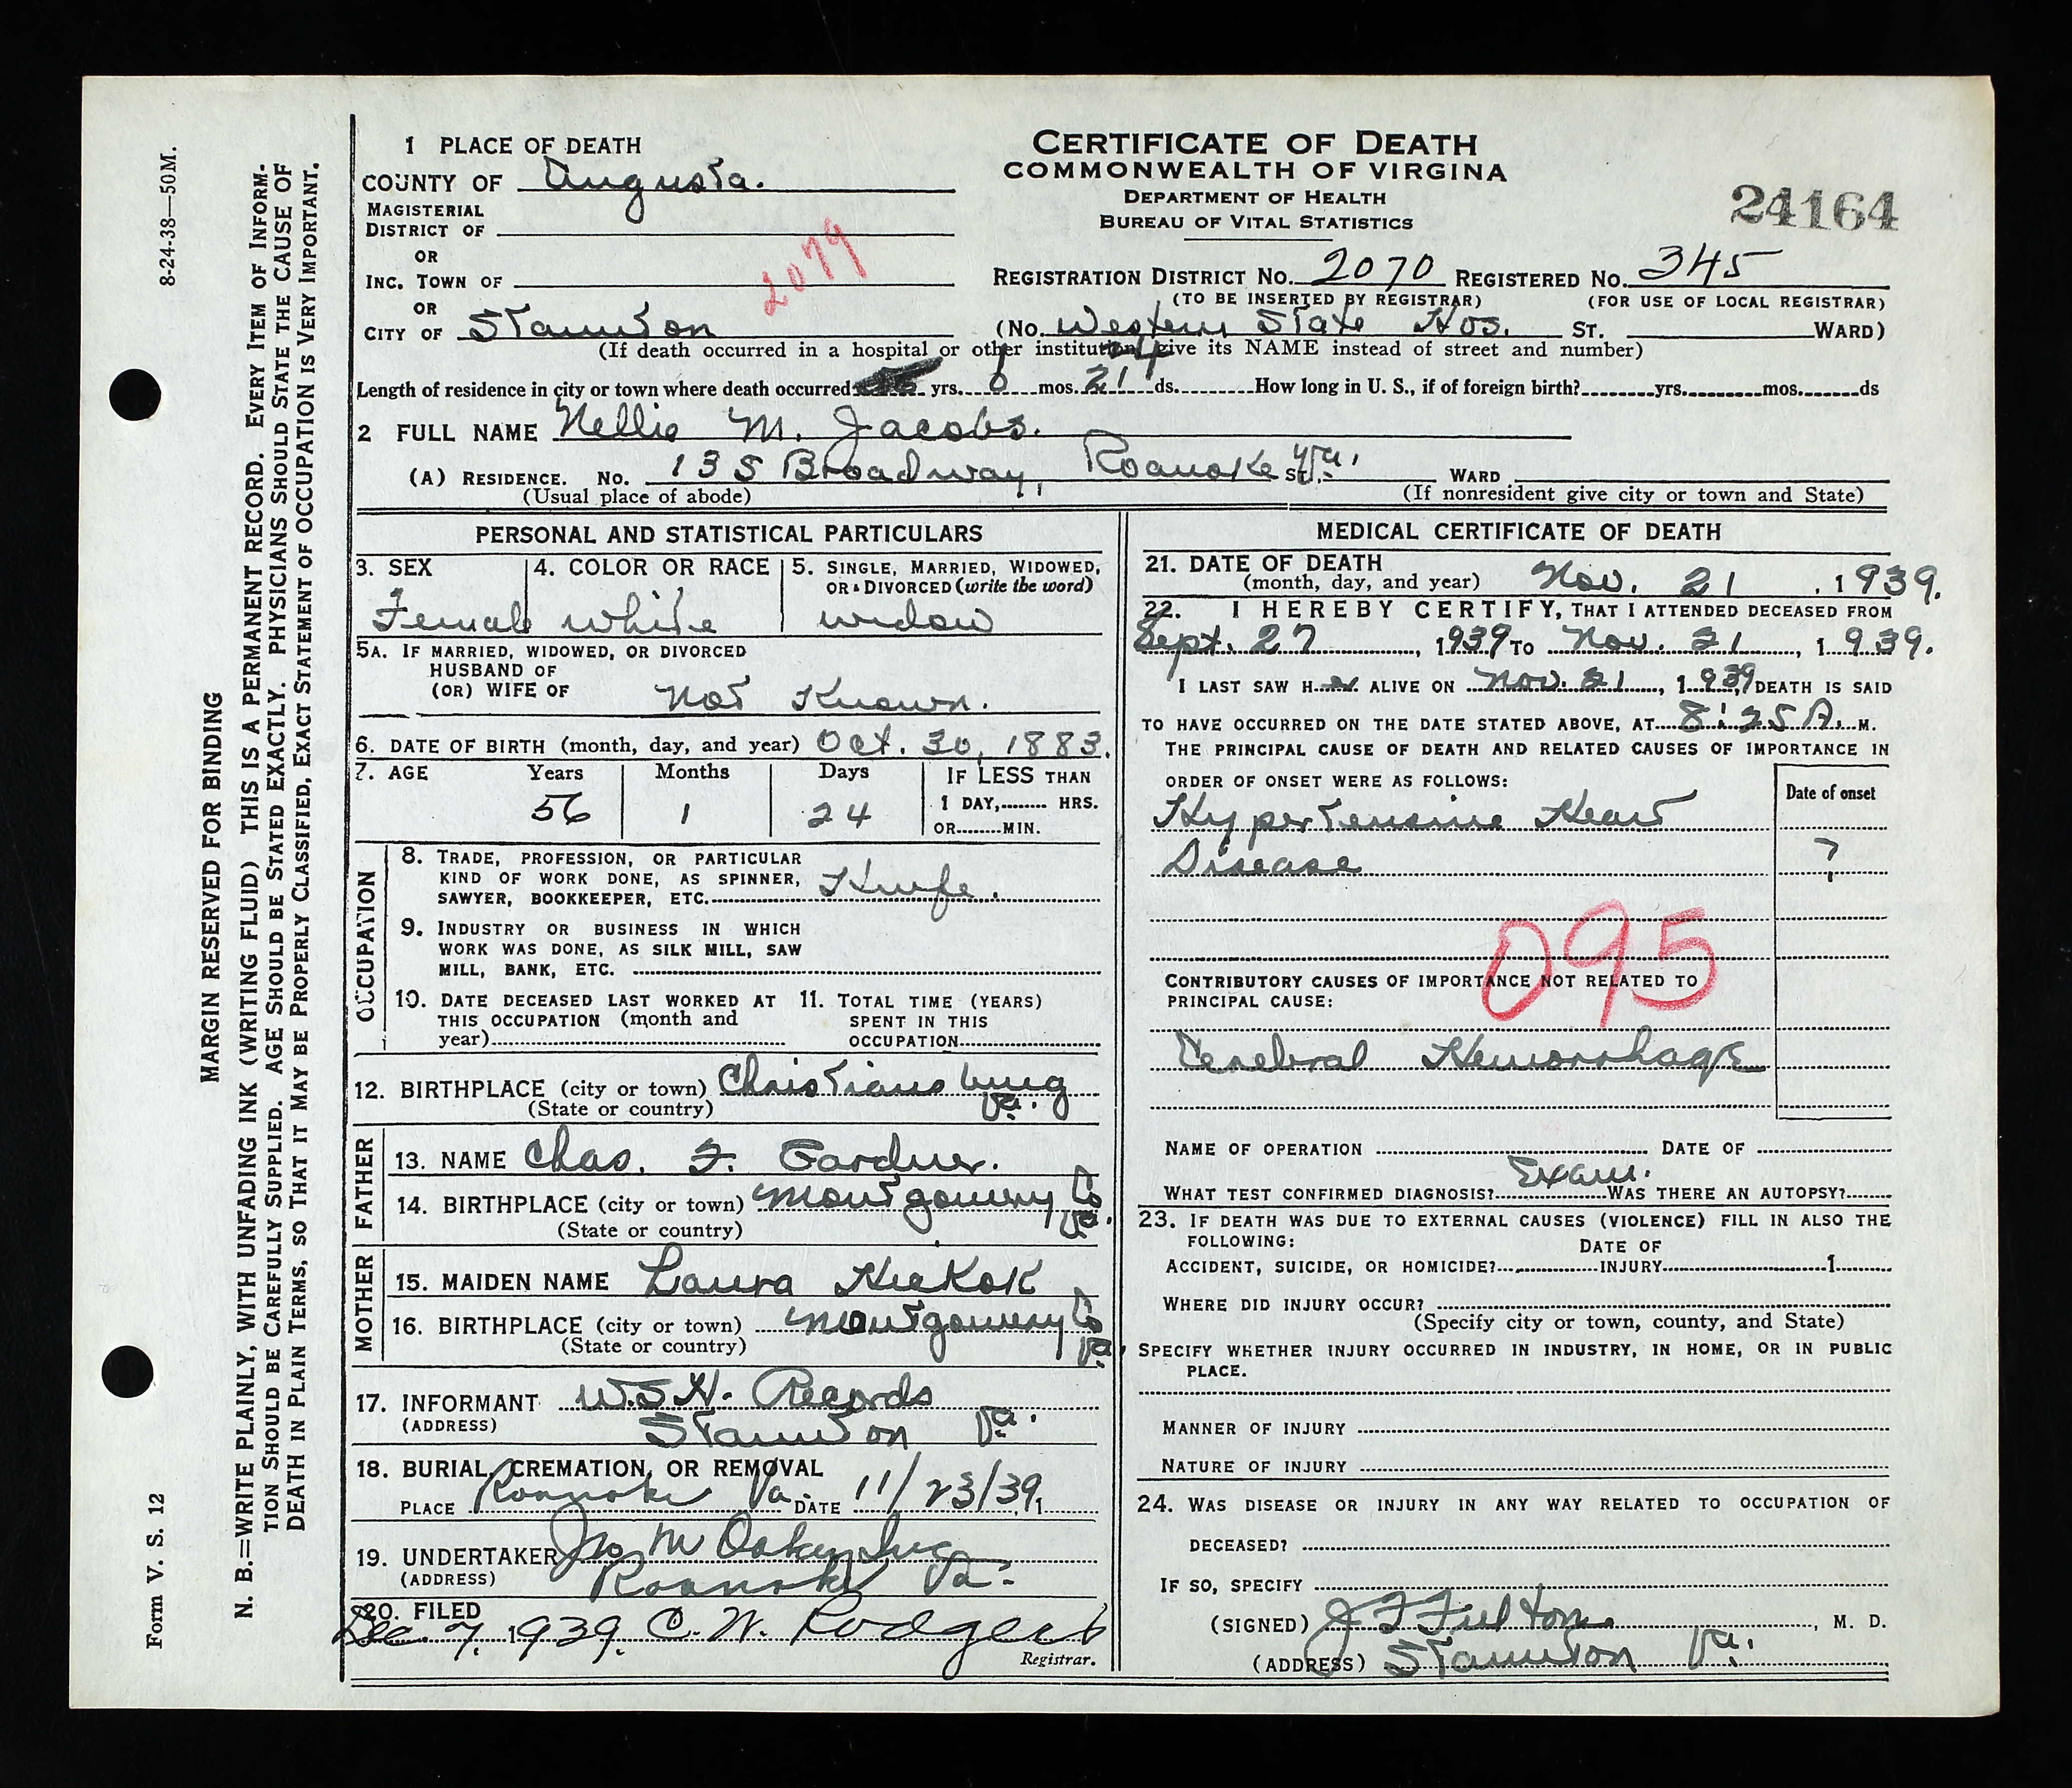 8-24-38—50M.
MARGIN RESERVED FOR BINDING
N. B.=WRITE PLAINLY, WITH UNFADING INK (WRITING FLUID) THIS IS A PERMANENT RECORD. EVERY ITEM OF INFORM-
TION SHOULD BE CAREFULLY SUPPLIED. AGE SHOULD BE STATED EXACTLY. PHYSICIANS SHOULD STATE THE CAUSE OF
DEATH IN PLAIN TERMS, SO THAT IT MAY BE PROPERLY CLASSIFIED. EXACT STATEMENT OF OCCUPATION IS VERY IMPORTANT.
Form V. S. 12
1 PLACE OF DEATH
COUNTY OF Augusta.
MAGISTERIAL
DISTRICT OF
OR
INC. TOWN OF
OR
CITY OF Staunton
2079
CERTIFICATE OF DEATH
COMMONWEALTH OF VIRGINIA
DEPARTMENT OF HEALTH
BUREAU OF VITAL STATISTICS
24164
REGISTRATION DISTRICT NO. 2070 REGISTERED NO. 345
(TO BE INSERTED BY REGISTRAR) (FOR USE OF LOCAL REGISTRAR)
(NO. Western State Hos. ST. WARD)
(If death occurred in a hospital or other institution, give its NAME instead of street and number)
Length of residence in city or town where death occurred yrs. mos. ds. How long in U. S., if of foreign birth? yrs. mos. ds
2 FULL NAME Nellie M. Jacobs.
(A) RESIDENCE. NO. 135 Broadway, Roanoke ST. Va. WARD
(Usual place of abode) (If nonresident give city or town and State)
PERSONAL AND STATISTICAL PARTICULARS
3. SEX 4. COLOR OR RACE 5. SINGLE, MARRIED, WIDOWED,
OR DIVORCED (write the word)
Female white widow
5A. IF MARRIED, WIDOWED, OR DIVORCED
HUSBAND OF
(OR) WIFE OF Not Known.
6. DATE OF BIRTH (month, day, and year) Oct. 30, 1883.
7. AGE Years Months Days IF LESS THAN
56 1 24 1 DAY, HRS.
OR MIN.
OCCUPATION
8. TRADE, PROFESSION, OR PARTICULAR
KIND OF WORK DONE, AS SPINNER,
SAWYER, BOOKKEEPER, ETC. Hwfe.
9. INDUSTRY OR BUSINESS IN WHICH
WORK WAS DONE, AS SILK MILL, SAW
MILL, BANK, ETC.
10. DATE DECEASED LAST WORKED AT 11. TOTAL TIME (YEARS)
THIS OCCUPATION (month and SPENT IN THIS
year) OCCUPATION
12. BIRTHPLACE (city or town) Christiansburg
(State or country) Va.
FATHER
13. NAME Chas. F. Gardner.
14. BIRTHPLACE (city or town) Montgomery Co
(State or country) Va.
MOTHER
15. MAIDEN NAME Laura Hickok
16. BIRTHPLACE (city or town) Montgomery Co
(State or country) Va.
17. INFORMANT W.S.H. Records
(ADDRESS) Staunton Va.
18. BURIAL, CREMATION, OR REMOVAL
PLACE Roanoke Va. DATE 11/23/39, 1
19. UNDERTAKER Jno M Oakey Inc
(ADDRESS) Roanoke Va.
20. FILED
Dec. 7. 1939. C. W. Rodgers
Registrar.
MEDICAL CERTIFICATE OF DEATH
21. DATE OF DEATH
(month, day, and year) Nov. 21, 1939.
22. I HEREBY CERTIFY, THAT I ATTENDED DECEASED FROM
Sept. 27, 1939 TO Nov. 21, 1939.
I LAST SAW H er ALIVE ON Nov. 21, 1939, DEATH IS SAID
TO HAVE OCCURRED ON THE DATE STATED ABOVE, AT 8:25 A. M.
THE PRINCIPAL CAUSE OF DEATH AND RELATED CAUSES OF IMPORTANCE IN
ORDER OF ONSET WERE AS FOLLOWS: Date of onset
Hypertensive Heart
Disease ?
095
CONTRIBUTORY CAUSES OF IMPORTANCE NOT RELATED TO
PRINCIPAL CAUSE:
Cerebral Hemorrhage
NAME OF OPERATION DATE OF
WHAT TEST CONFIRMED DIAGNOSIS? Exam. WAS THERE AN AUTOPSY?
23. IF DEATH WAS DUE TO EXTERNAL CAUSES (VIOLENCE) FILL IN ALSO THE
FOLLOWING: DATE OF
ACCIDENT, SUICIDE, OR HOMICIDE? INJURY 1
WHERE DID INJURY OCCUR?
(Specify city or town, county, and State)
SPECIFY WHETHER INJURY OCCURRED IN INDUSTRY, IN HOME, OR IN PUBLIC
PLACE.
MANNER OF INJURY
NATURE OF INJURY
24. WAS DISEASE OR INJURY IN ANY WAY RELATED TO OCCUPATION OF
DECEASED?
IF SO, SPECIFY
(SIGNED) J F Fulton, M. D.
(ADDRESS) Staunton Va.